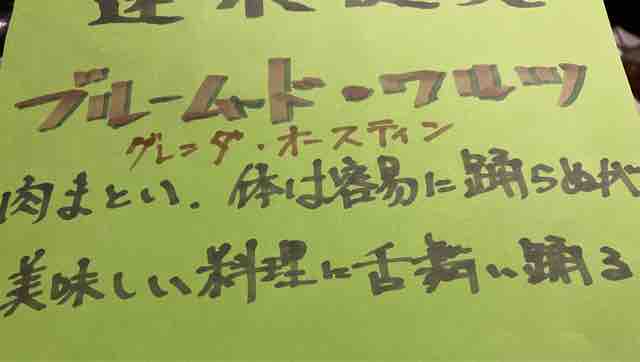 ブルームード・ワルツ
グレンダ・オースティン
肉まとい、体は容易に踊らぬが
美味しい料理に舌舞い踊る